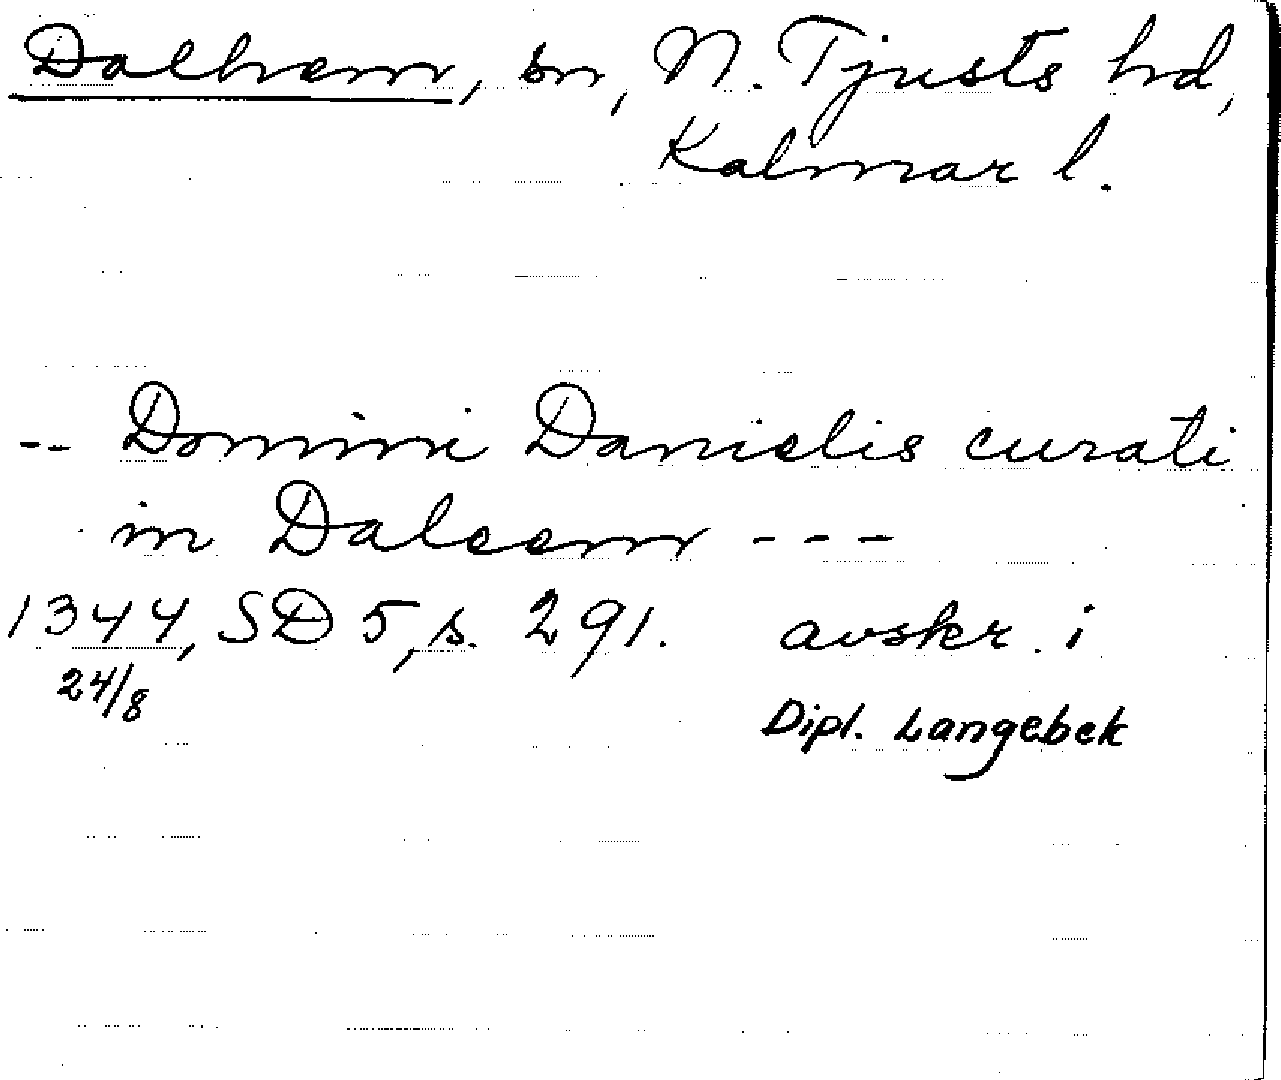 Dalhem, sn, N. Tjusts hd,
Kalmar l.
-- Domini Danielis curati
in Daleem ---
1344, SD 5, s. 291. avskr. i
24/8
Dipl. Langebek